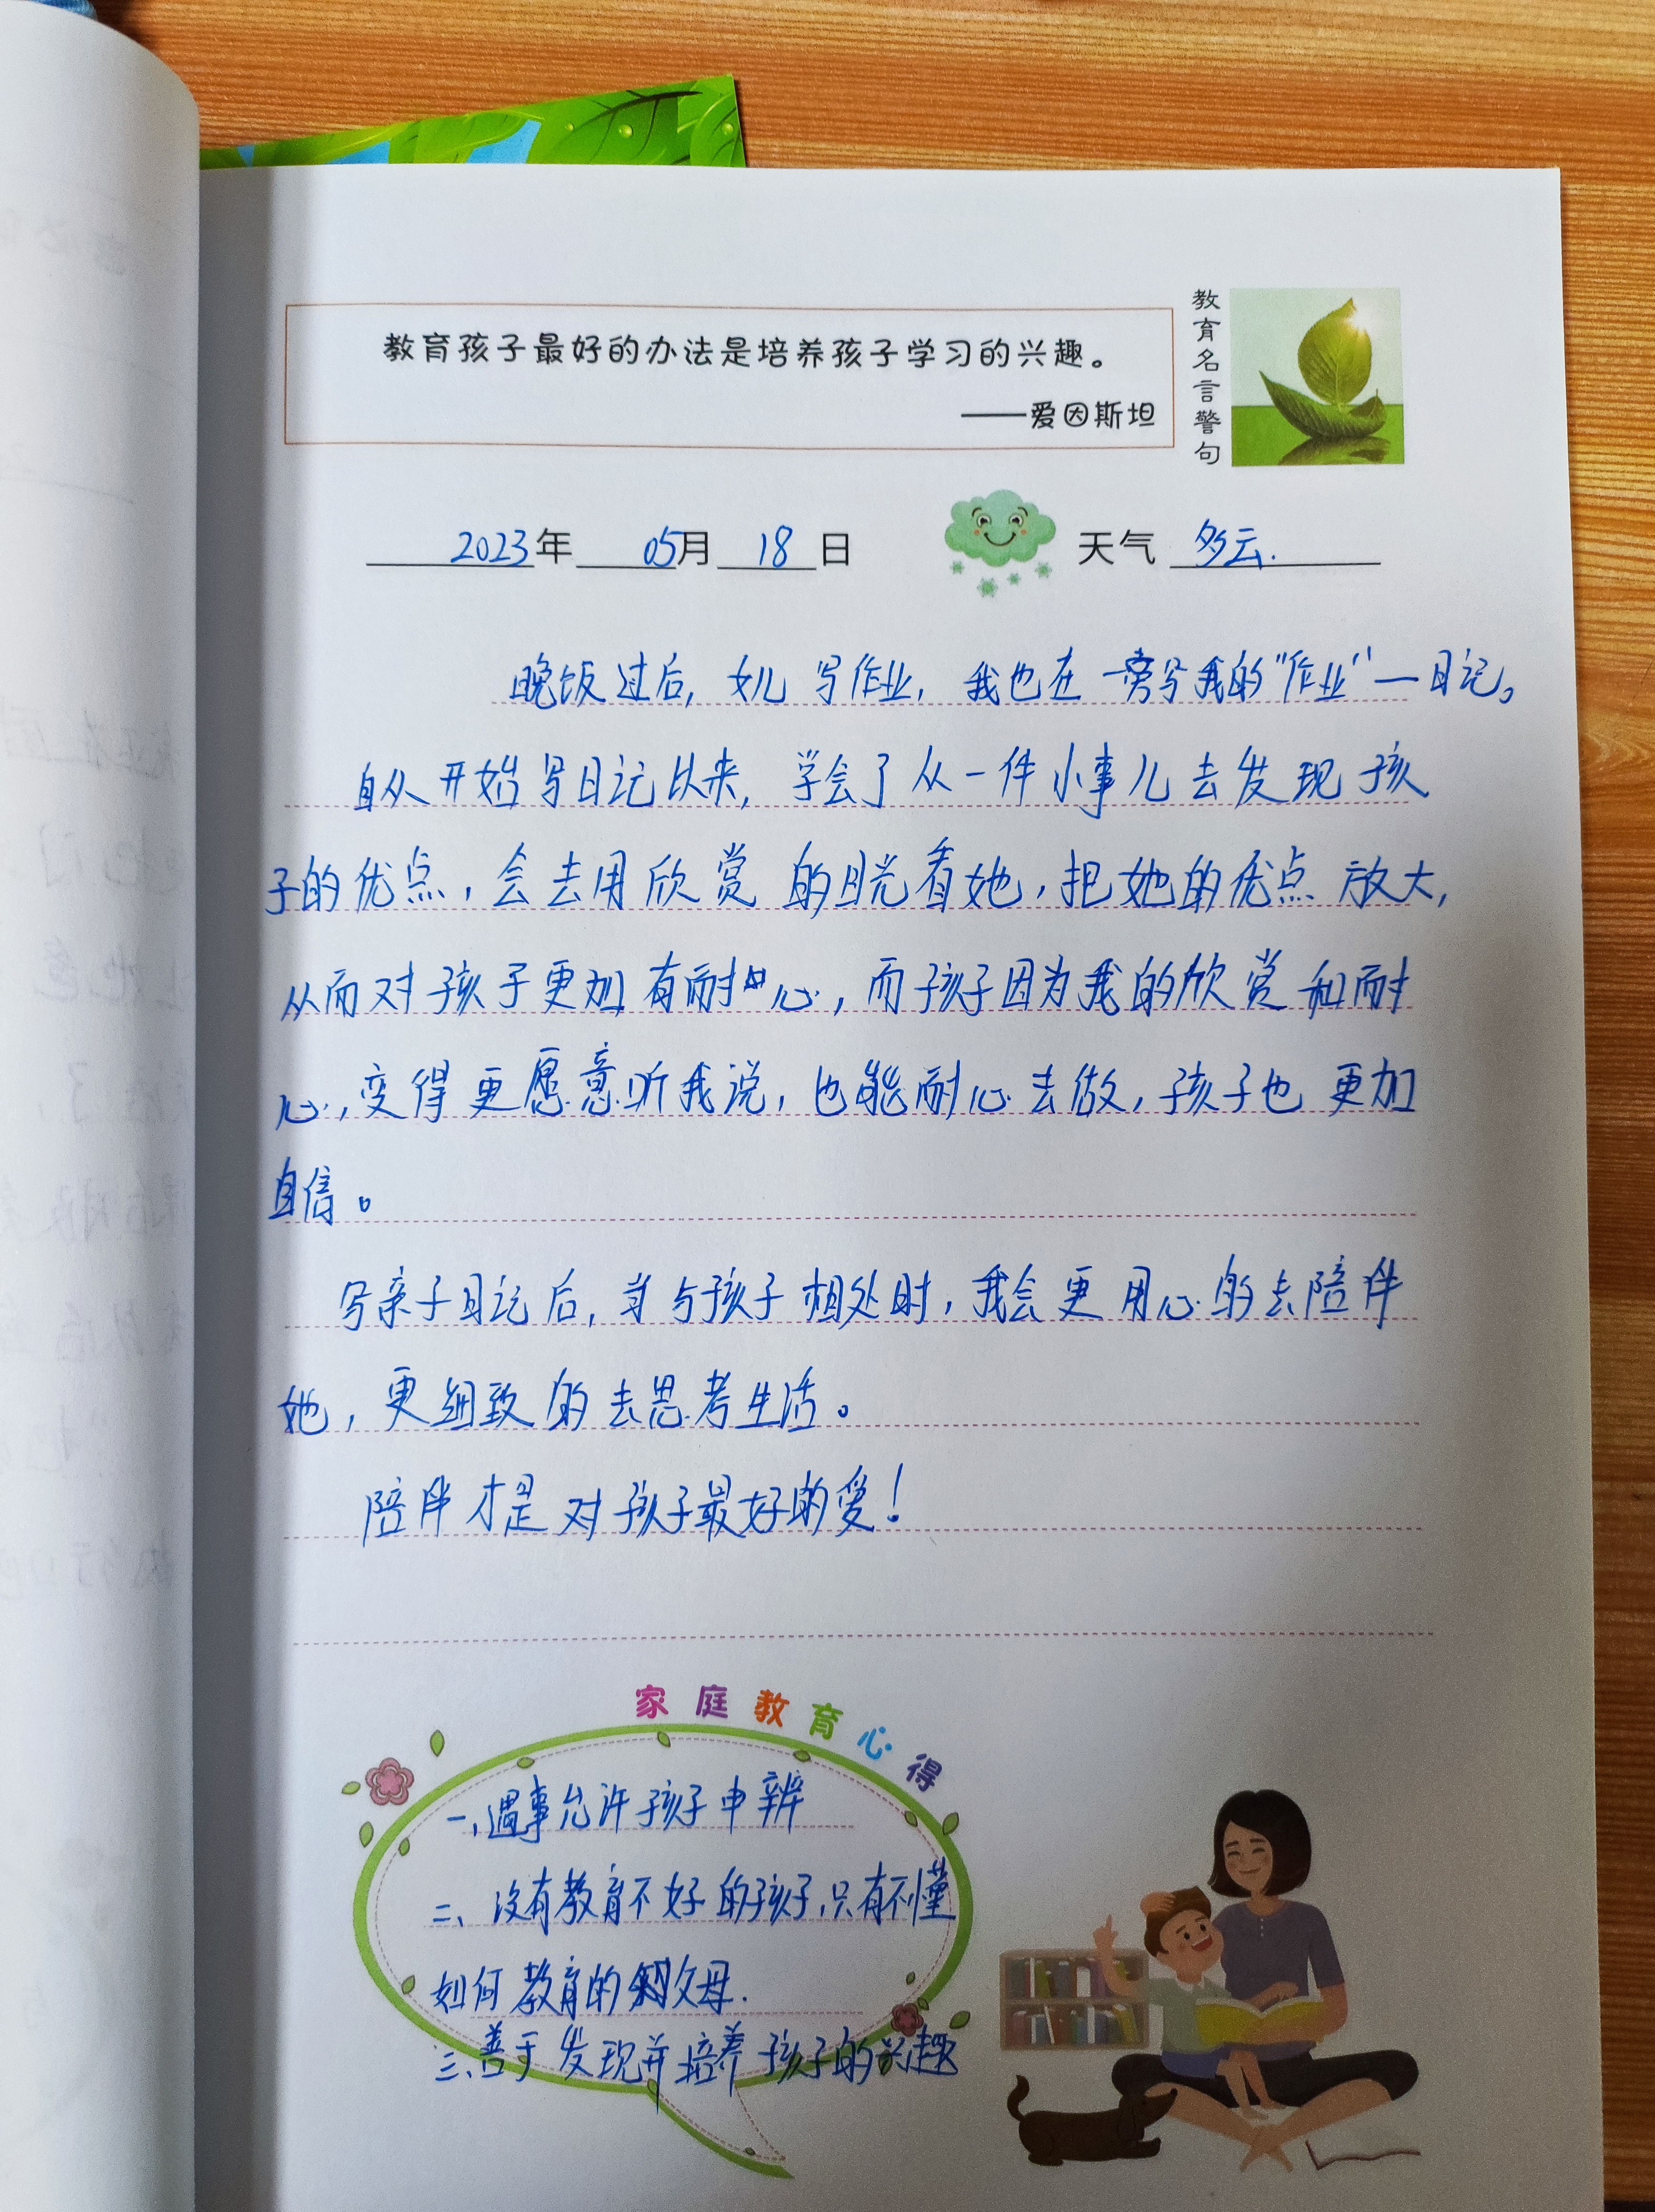 教育孩子最好的办法是培养孩子学习的兴趣。
——爱因斯坦
教育名言警句
2023年 05月 18日 天气 多云.
晚饭过后，女儿写作业，我也在一旁写我的“作业”—日记。
自从开始写日记以来，学会了从一件小事儿去发现孩
子的优点，会去用欣赏的目光看她，把她的优点放大，
从而对孩子更加有耐心，而孩子因为我的欣赏和耐
心，变得更愿意听我说，也能耐心去做，孩子也更加
自信。
写亲子日记后，当与孩子相处时，我会更用心的去陪伴
她，更细致的去思考生活。
陪伴才是对孩子最好的爱！
家庭教育心得
一、遇事允许孩子申辨
二、没有教育不好的孩子，只有不懂
如何教育的父母.
三、善于发现并培养孩子的兴趣